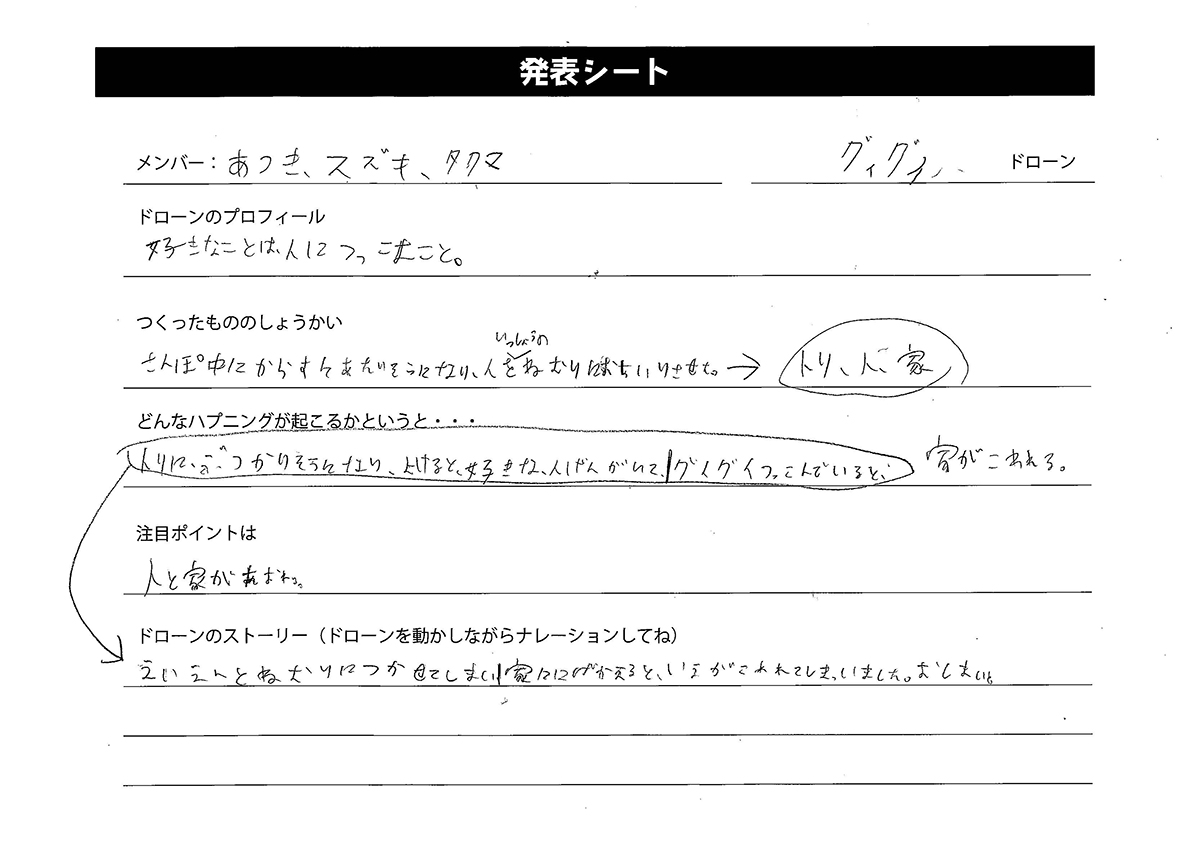 発表シート
メンバー：あつき、スズキ、タクマ
グイグイ ドローン
ドローンのプロフィール
好きなことは、人につっこむこと。
つくったもののしょうかい
いっしょうの
さんぽ中にからすにあたりそうになり、人をねむりにおちいりさせた。→ トリ、人、家
どんなハプニングが起こるかというと・・・
トリに、ぶつかりそうになり、よけると、好きな、人げんがいて、グイグイつっこんでいると、家がこわれる。
注目ポイントは
人と家が
ドローンのストーリー（ドローンを動かしながらナレーションしてね）
えいえんとねむりにつかせてしまい家ににげかえると、いえがこわれてしまいました。おしまい。